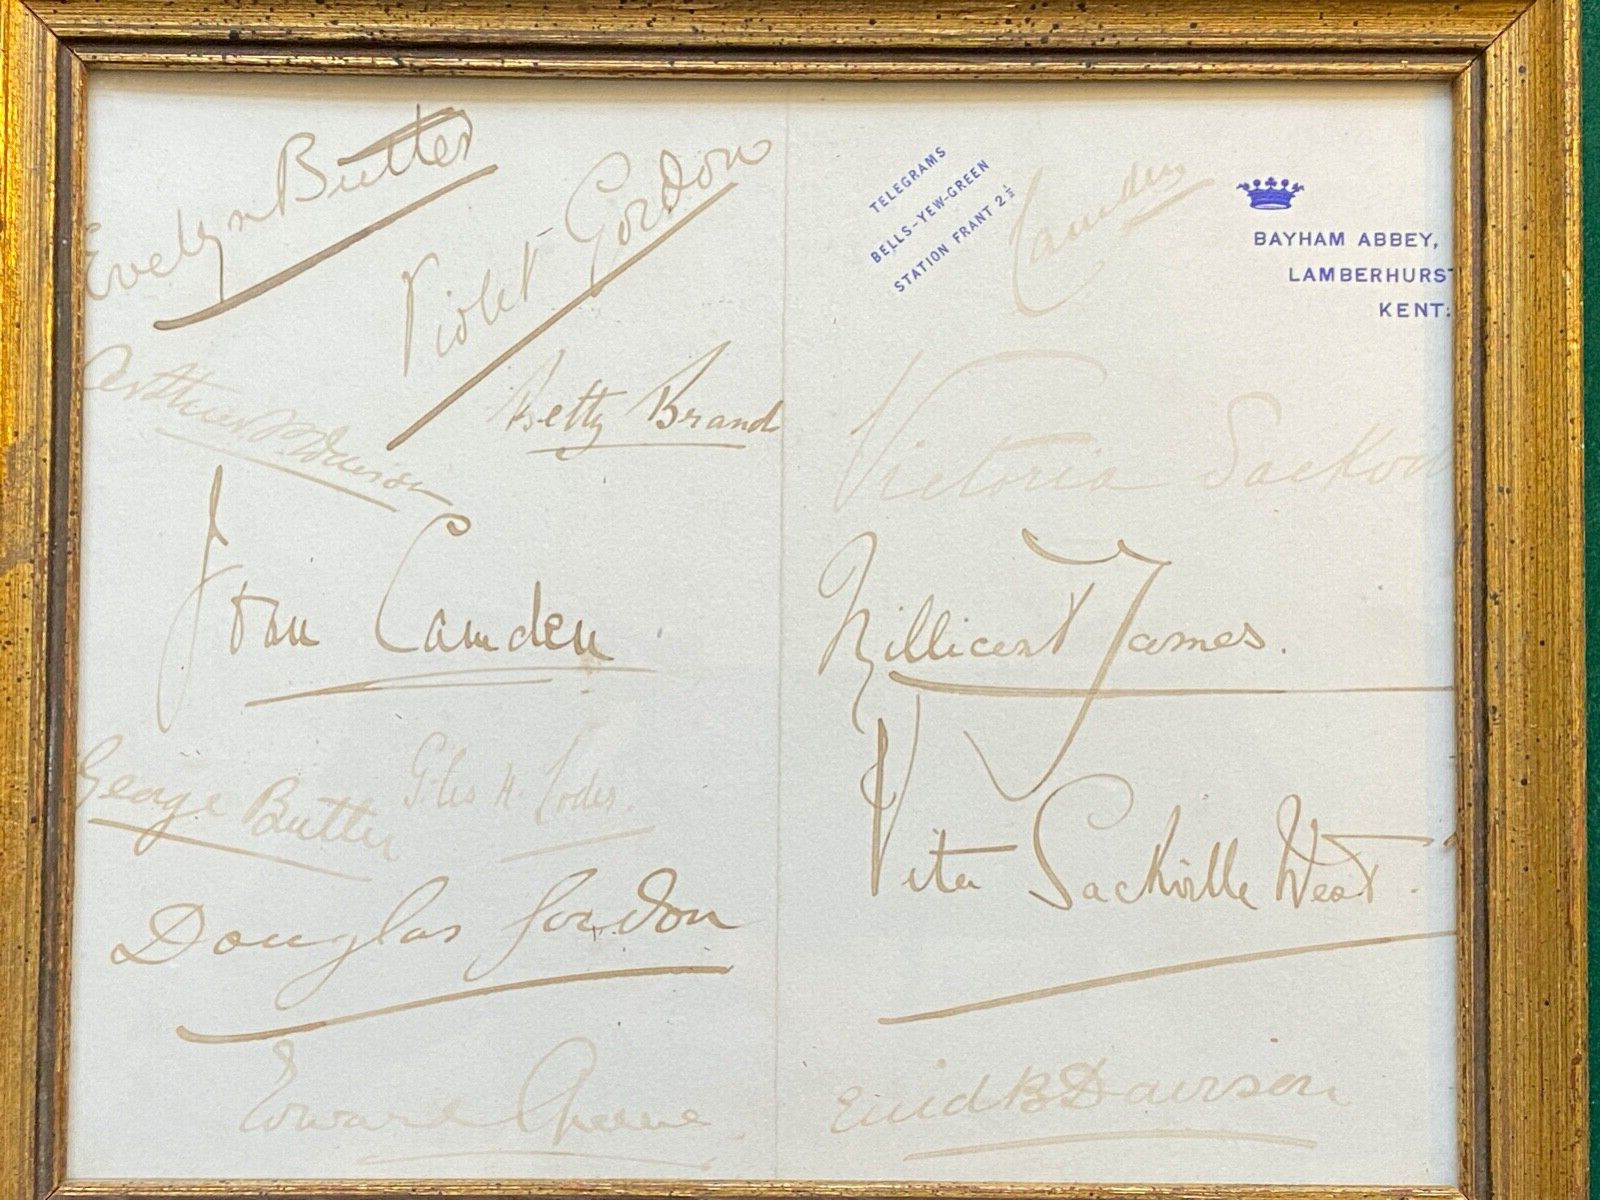 Evelyn Butter
Violet Gordon
Arthur
Betty Brand
Joan Camden
George Butter
Giles H.
Douglas Gordon
Edward
TELEGRAMS
BELLS-YEW-GREEN
STATION FRANT 2½
Camden
BAYHAM ABBEY,
LAMBERHURST
KENT.
Victoria Sackv
Millicent James.
Vita Sackville West.
Enid B Davison